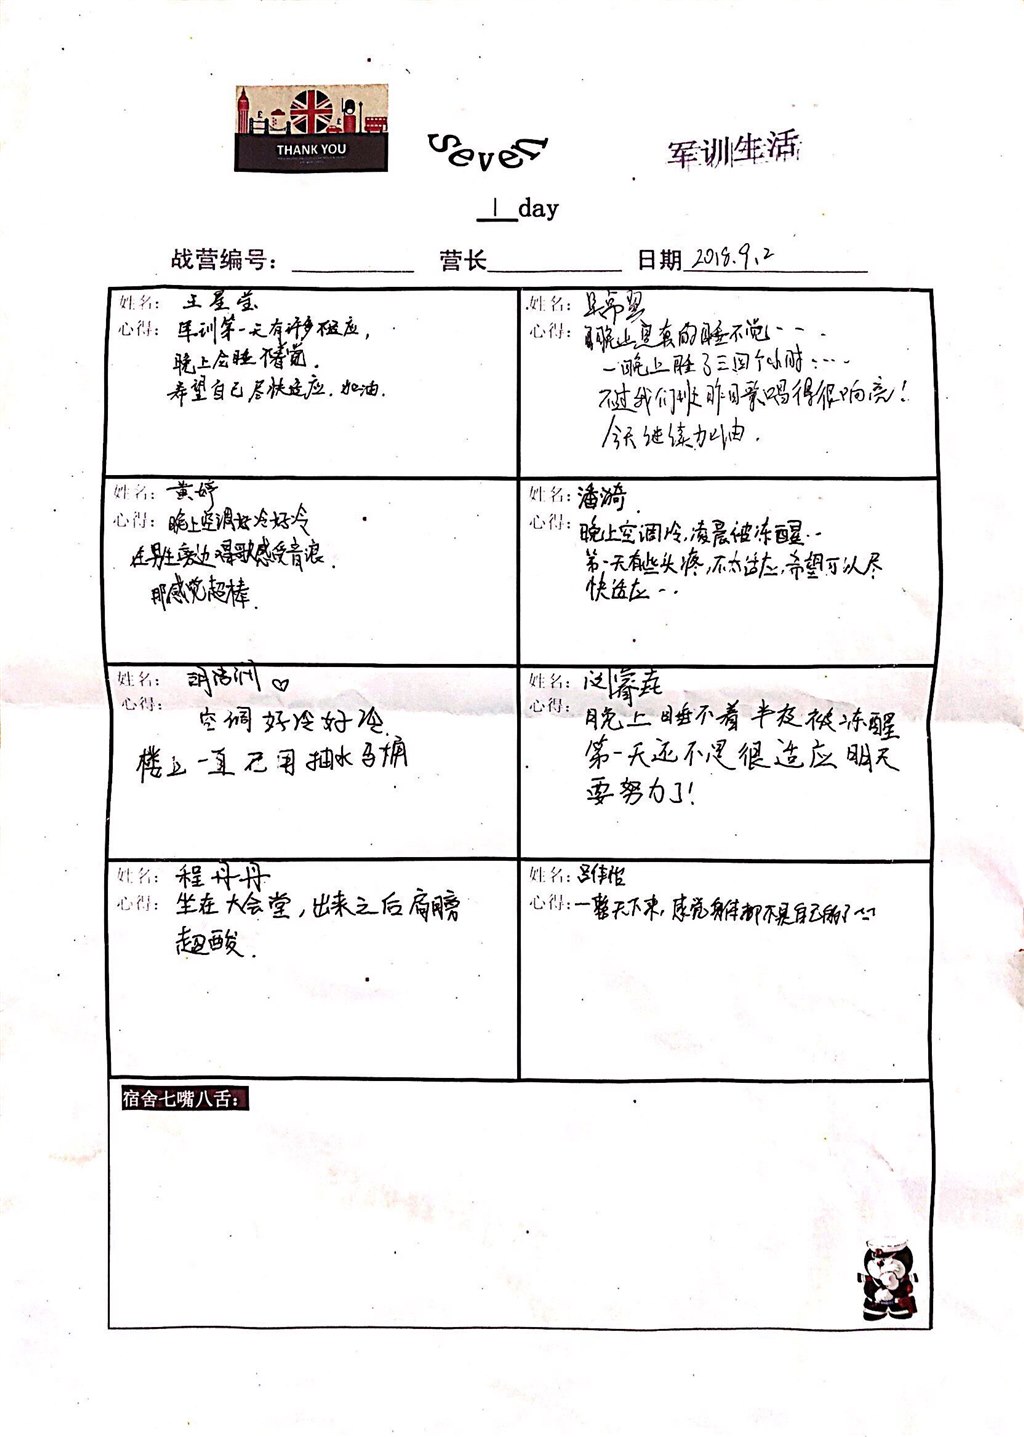 THANK YOU
seven
军训生活
1 day
战营编号：
营长
日期 2018.9.2
姓名： 王星莹
心得： 军训第一天有许多不适应，
晚上会睡不着觉．
希望自己尽快适应．加油．
姓名：
心得： 晚上里真的睡不觉．．．．
一晚上睡了三四个小时．．．．
不过我们班昨日歌唱得很响亮！
今天继续加油．
姓名： 黄婷
心得： 晚上空调好冷好冷
在男生旁边唱歌感受音浪．
那感觉超棒．
姓名： 潘漪
心得： 晚上空调冷，凌晨被冻醒．．
第一天有些头疼，不太适应，希望可以尽
快适应．．
姓名： 胡洁洲 ♡
心得：
空调好冷好冷
楼上一直在用抽水马桶
姓名：
心得： 晚上睡不着半夜被冻醒
第一天还不是很适应明天
要努力了！
姓名： 程丹丹
心得： 坐在大会堂，出来之后肩膀
超酸．
姓名： 吕佳怡
心得： 一整天下来，感觉身体都不是自己的了
宿舍七嘴八舌：